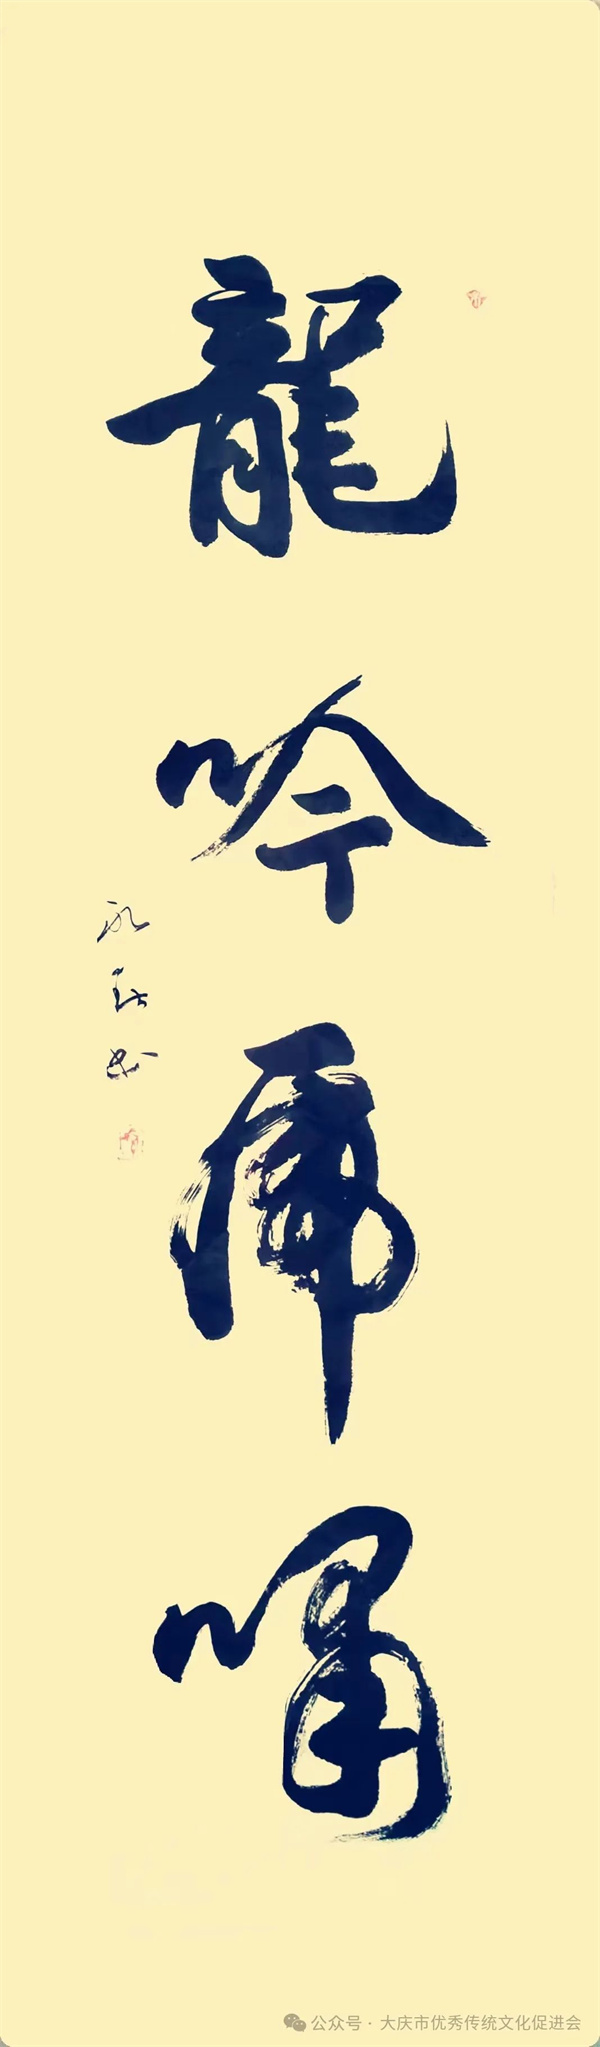 龍吟虎嘯
书
公众号·大庆市优秀传统文化促进会